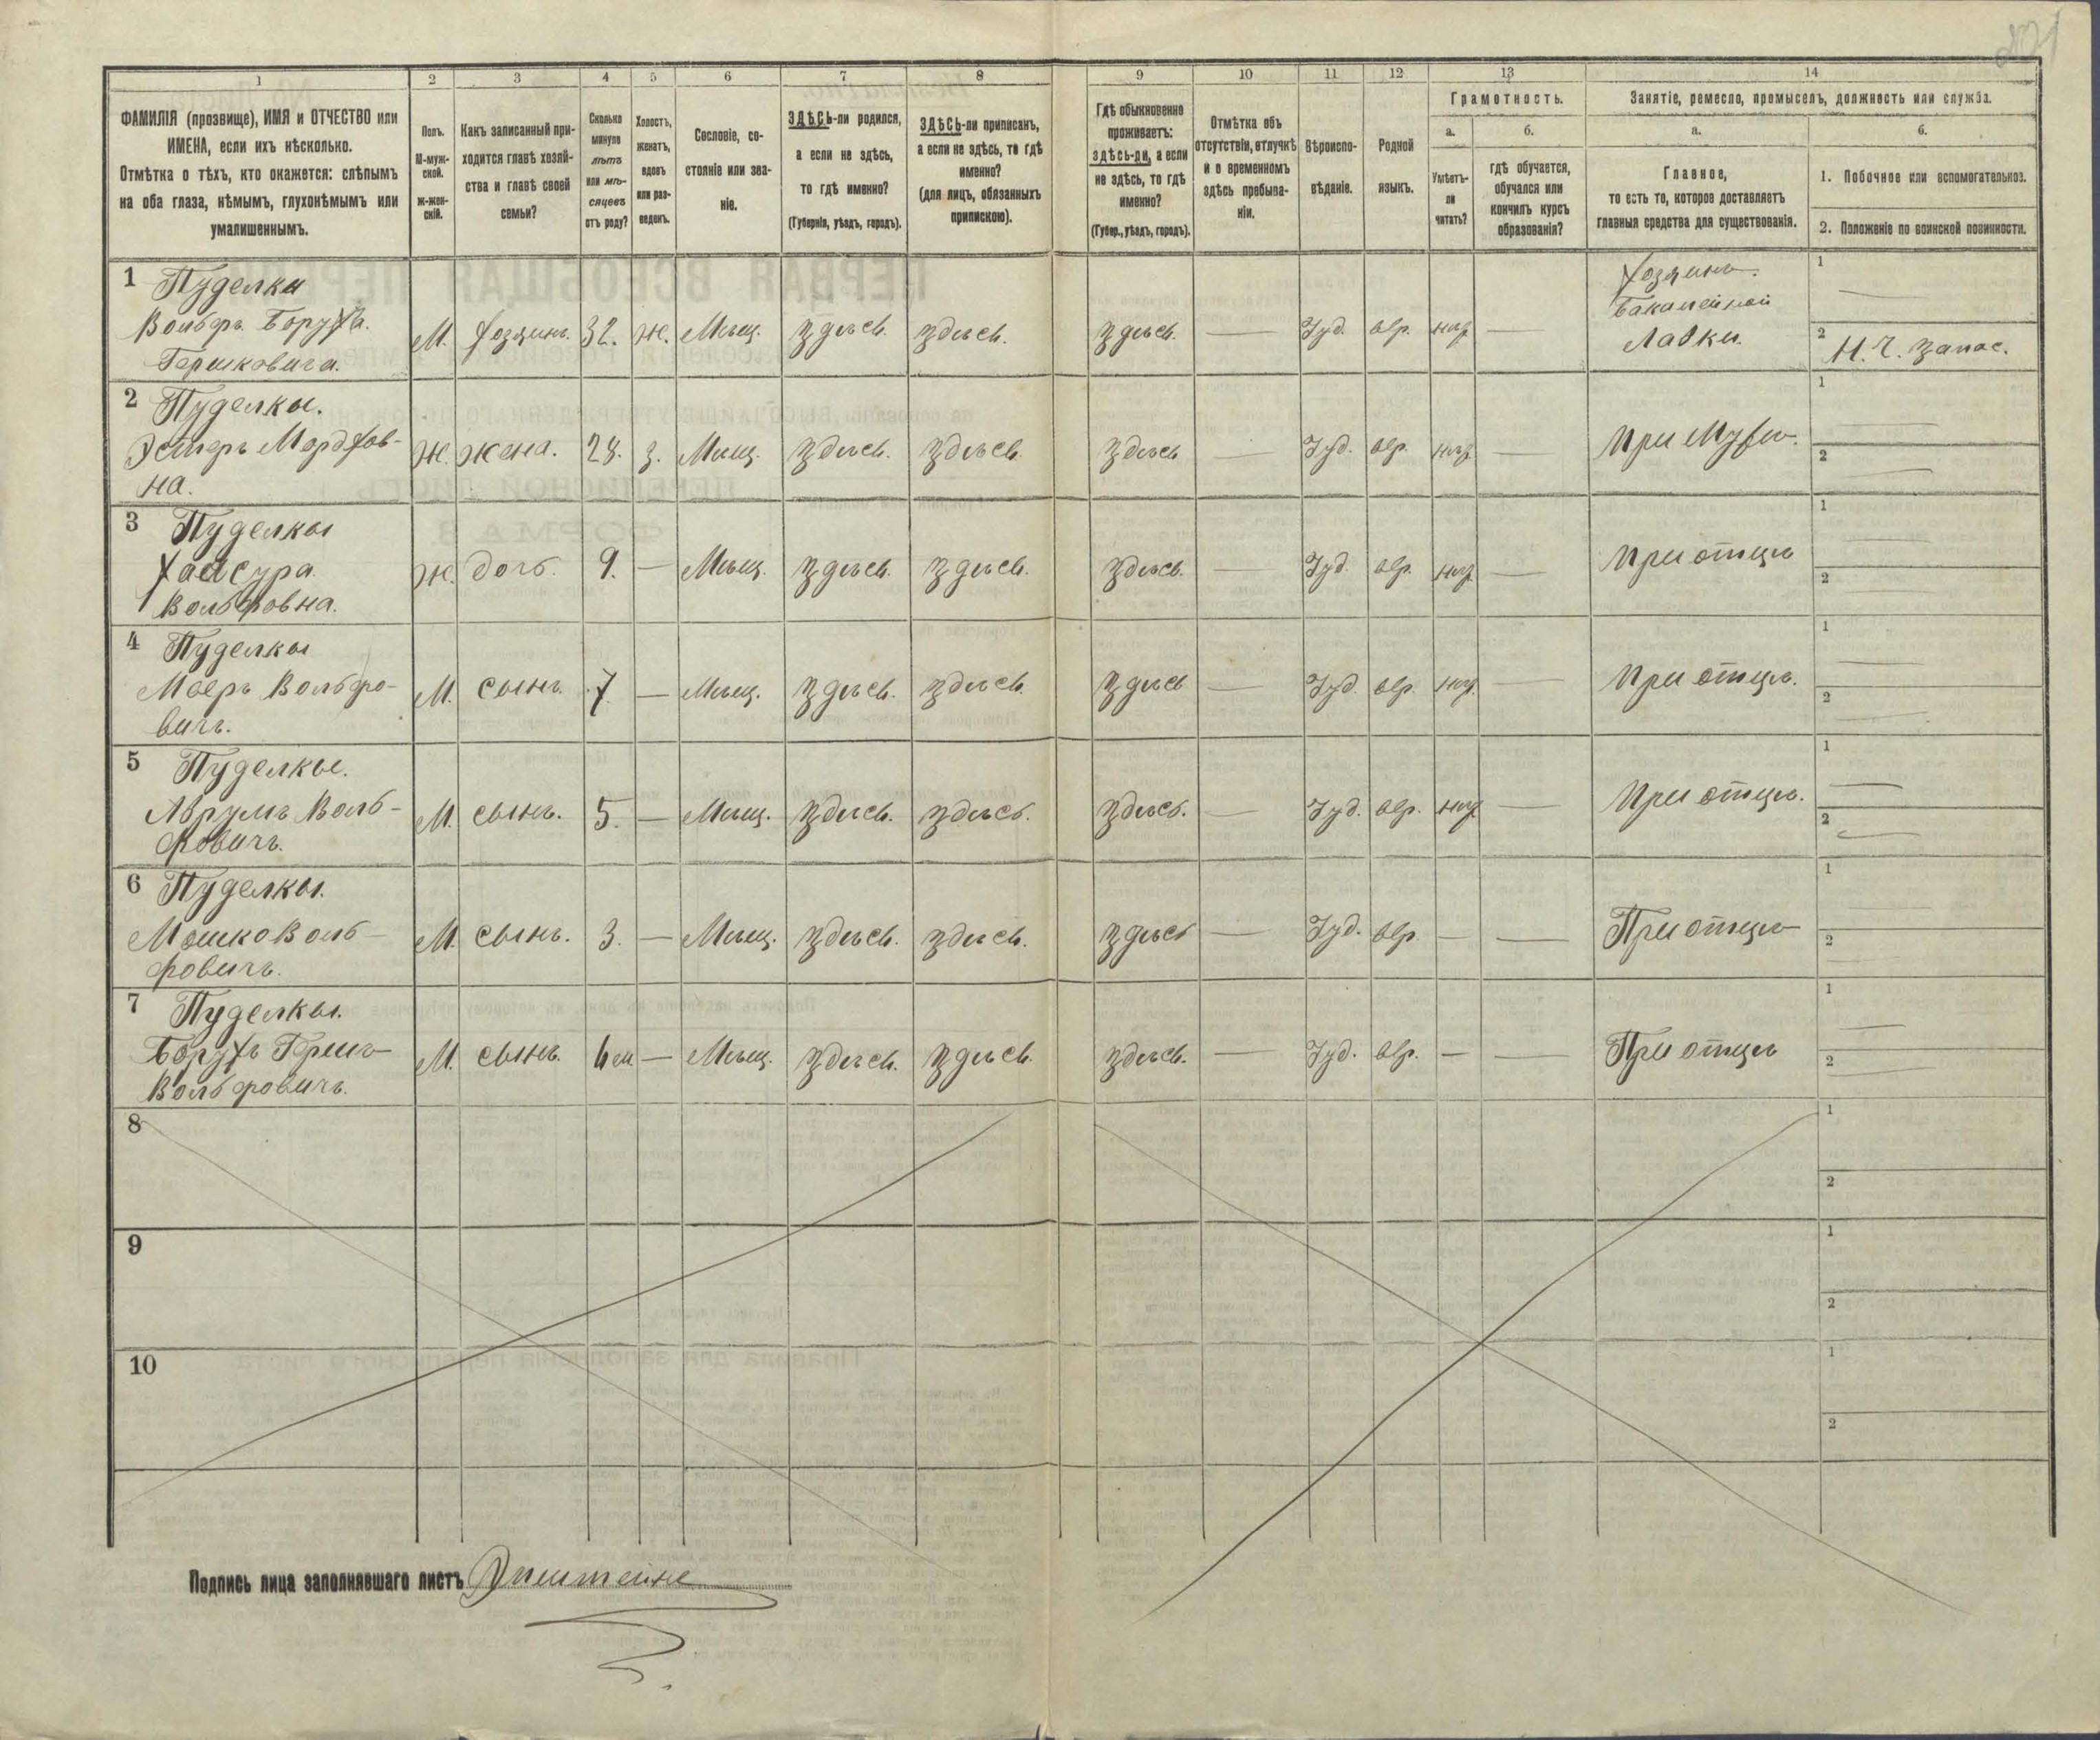 1 2 3 4 5 6 7 8 9 10 11 12 13 14
ФАМИЛІЯ (прозвище), ИМЯ и ОТЧЕСТВО или
ИМЕНА, если ихъ нѣсколько.
Отмѣтка о тѣхъ, кто окажется: слѣпымъ
на оба глаза, нѣмымъ, глухонѣмымъ или
умалишеннымъ.
Полъ.
М-муж-
ской.
ж-жен-
скій.
Какъ записанный при-
ходится главѣ хозяй-
ства и главѣ своей
семьи?
Сколько
минуло
лѣтъ
или мѣ-
сяцевъ
отъ роду?
Холостъ,
женатъ,
вдовъ
или раз-
веденъ.
Сословіе, со-
стояніе или зва-
ніе.
ЗДѢСЬ-ли родился,
а если не здѣсь,
то гдѣ именно?
(Губернія, уѣздъ, городъ).
ЗДѢСЬ-ли приписанъ,
а если не здѣсь, то гдѣ
именно?
(для лицъ, обязанныхъ
припискою).
Гдѣ обыкновенно
проживаетъ:
здѣсь-ли, а если
не здѣсь, то гдѣ
именно?
(Губер., уѣздъ, городъ).
Отмѣтка объ
отсутствіи, отлучкѣ
и о временномъ
здѣсь пребыва-
ніи.
Вѣроиспо-
вѣданіе.
Родной
языкъ.
Грамотность.
а. б.
Умѣетъ-
ли
читать?
гдѣ обучается,
обучался или
кончилъ курсъ
образованія?
Занятіе, ремесло, промыселъ, должность или служба.
а. б.
Главное,
то есть то, которое доставляетъ
главныя средства для существованія.
1. Побочное или вспомогательное.
2. Положеніе по воинской повинности.
1 Пуделка
Вольфъ Борухъ
Гершковичъ.
М. хозяинъ. 32. ж. Мѣщ. здѣсь. здѣсь. здѣсь. — Іуд. евр. —
Хозяинъ
бакалейной
Лавки.
1 —
2 Н. Ч. запас.
2 Пуделки.
Эстеръ Мордхов-
на.
Ж. жена. 28. з. Мѣщ. здѣсь. здѣсь здѣсь — Іуд. евр. — При Мужѣ.
1 —
2 —
3 Пуделки
Хая Сура
Вольфовна.
Ж. дочь. 9. — Мѣщ. здѣсь. здѣсь. здѣсь. — Іуд. евр. — При отцѣ
1 —
2 —
4 Пуделки
Мееръ Вольфо-
вичъ.
М. сынъ. 7 — Мѣщ. здѣсь. здѣсь. здѣсь — Іуд. евр. — При отцѣ.
1 —
2 —
5 Пуделки.
Аврумъ Воль-
фовичъ.
М. сынъ. 5. — Мѣщ. здѣсь. здѣсь. здѣсь. — Іуд. евр. — При отцѣ.
1 —
2 —
6 Пуделки.
Мошко Воль-
фовичъ.
М. сынъ. 3. — Мѣщ. здѣсь. здѣсь. здѣсь — Іуд. евр — — При отцѣ
1 —
2 —
7 Пуделки.
Борухъ Гершъ
Вольфовичъ.
М. сынъ. 6 м — Мѣщ. здѣсь. здѣсь. здѣсь. — Іуд. евр. — — При отцѣ
1 —
2 —
8 1
2
9 1
2
10 1
2
Подпись лица заполнявшаго листъ